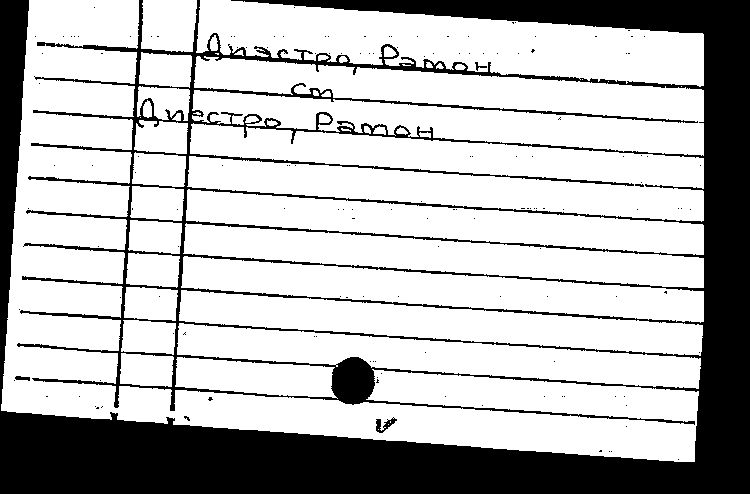 Диастро, Рамон
см
Диестро, Рамон